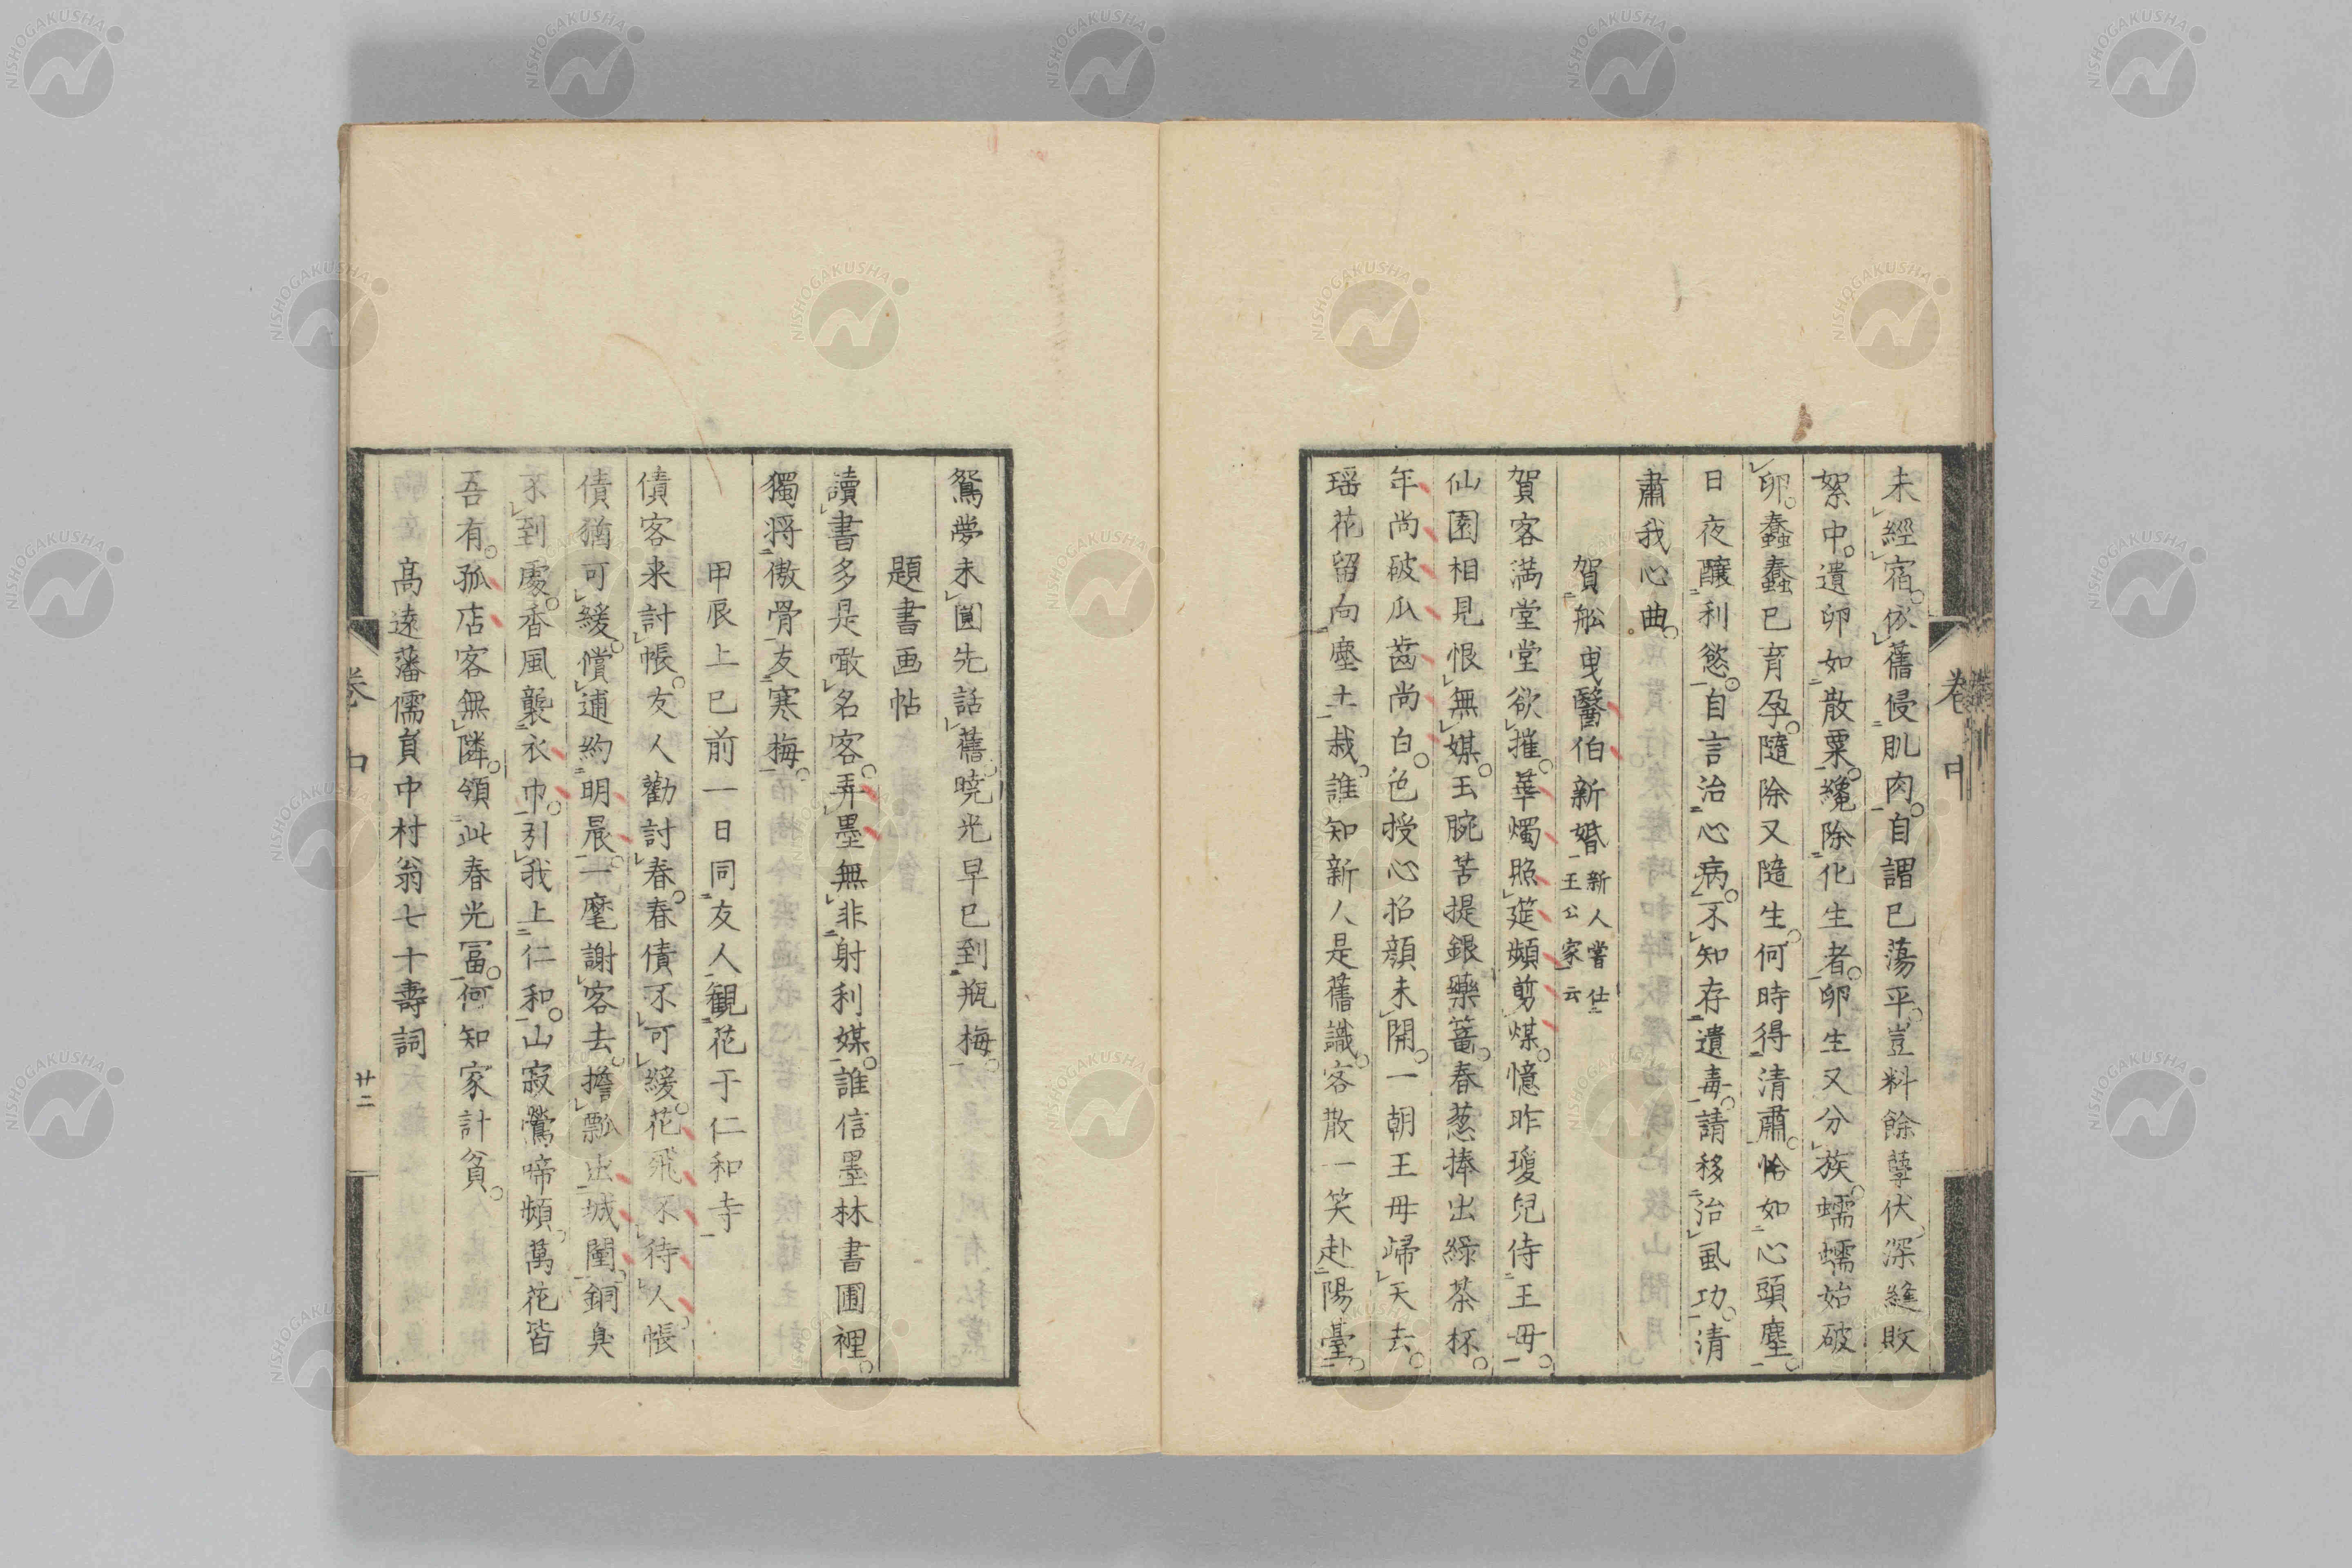 未經宿。依舊侵肌肉。自謂已蕩平。豈料餘孽伏。深縫敗
絮中。遺卵如散粟。纔除化生者。卵生又分族。蠕蠕始破
卵。蠢蠢已育孕。隨除又隨生。何時得清肅。恰如心頭塵。
日夜釀利慾。自言治心病。不知存遺毒。請移治虱功。清
肅我心曲。
賀船曳醫伯新婚
新人嘗仕
王公家云
賀客満堂堂欲摧。華燭照筵頻剪煤。憶昨瓊兒侍王母。
仙園相見恨無媒。玉腕苦提銀藥籠。春葱捧出緑茶杯。
年尚破瓜齒尚白。色授心招顔未開。一朝王母歸天去。
瑶花留向塵土栽。誰知新人是舊識。客散一笑赴陽臺。
卷中
鴛夢未圓先話舊。曉光早已到瓶梅。
題書画帖
讀書多是噉名客。弄墨無非射利媒。誰信墨林書圃裡。
獨将傲骨友寒梅。
甲辰上巳前一日同友人観花于仁和寺
債客来討帳。友人勸討春。春債不可緩。花飛不待人。帳
債猶可緩。償逋約明晨。一麾謝客去。擔瓢出城闉。銅臭
不到處。香風襲衣巾。引我上仁和。山寂鶯啼頻。萬花皆
吾有。孤店客無隣。領此春光冨。何知家計貧。
高遠藩儒員中村翁七十壽詞
卷中
廿二
NISHOGAKUSHA